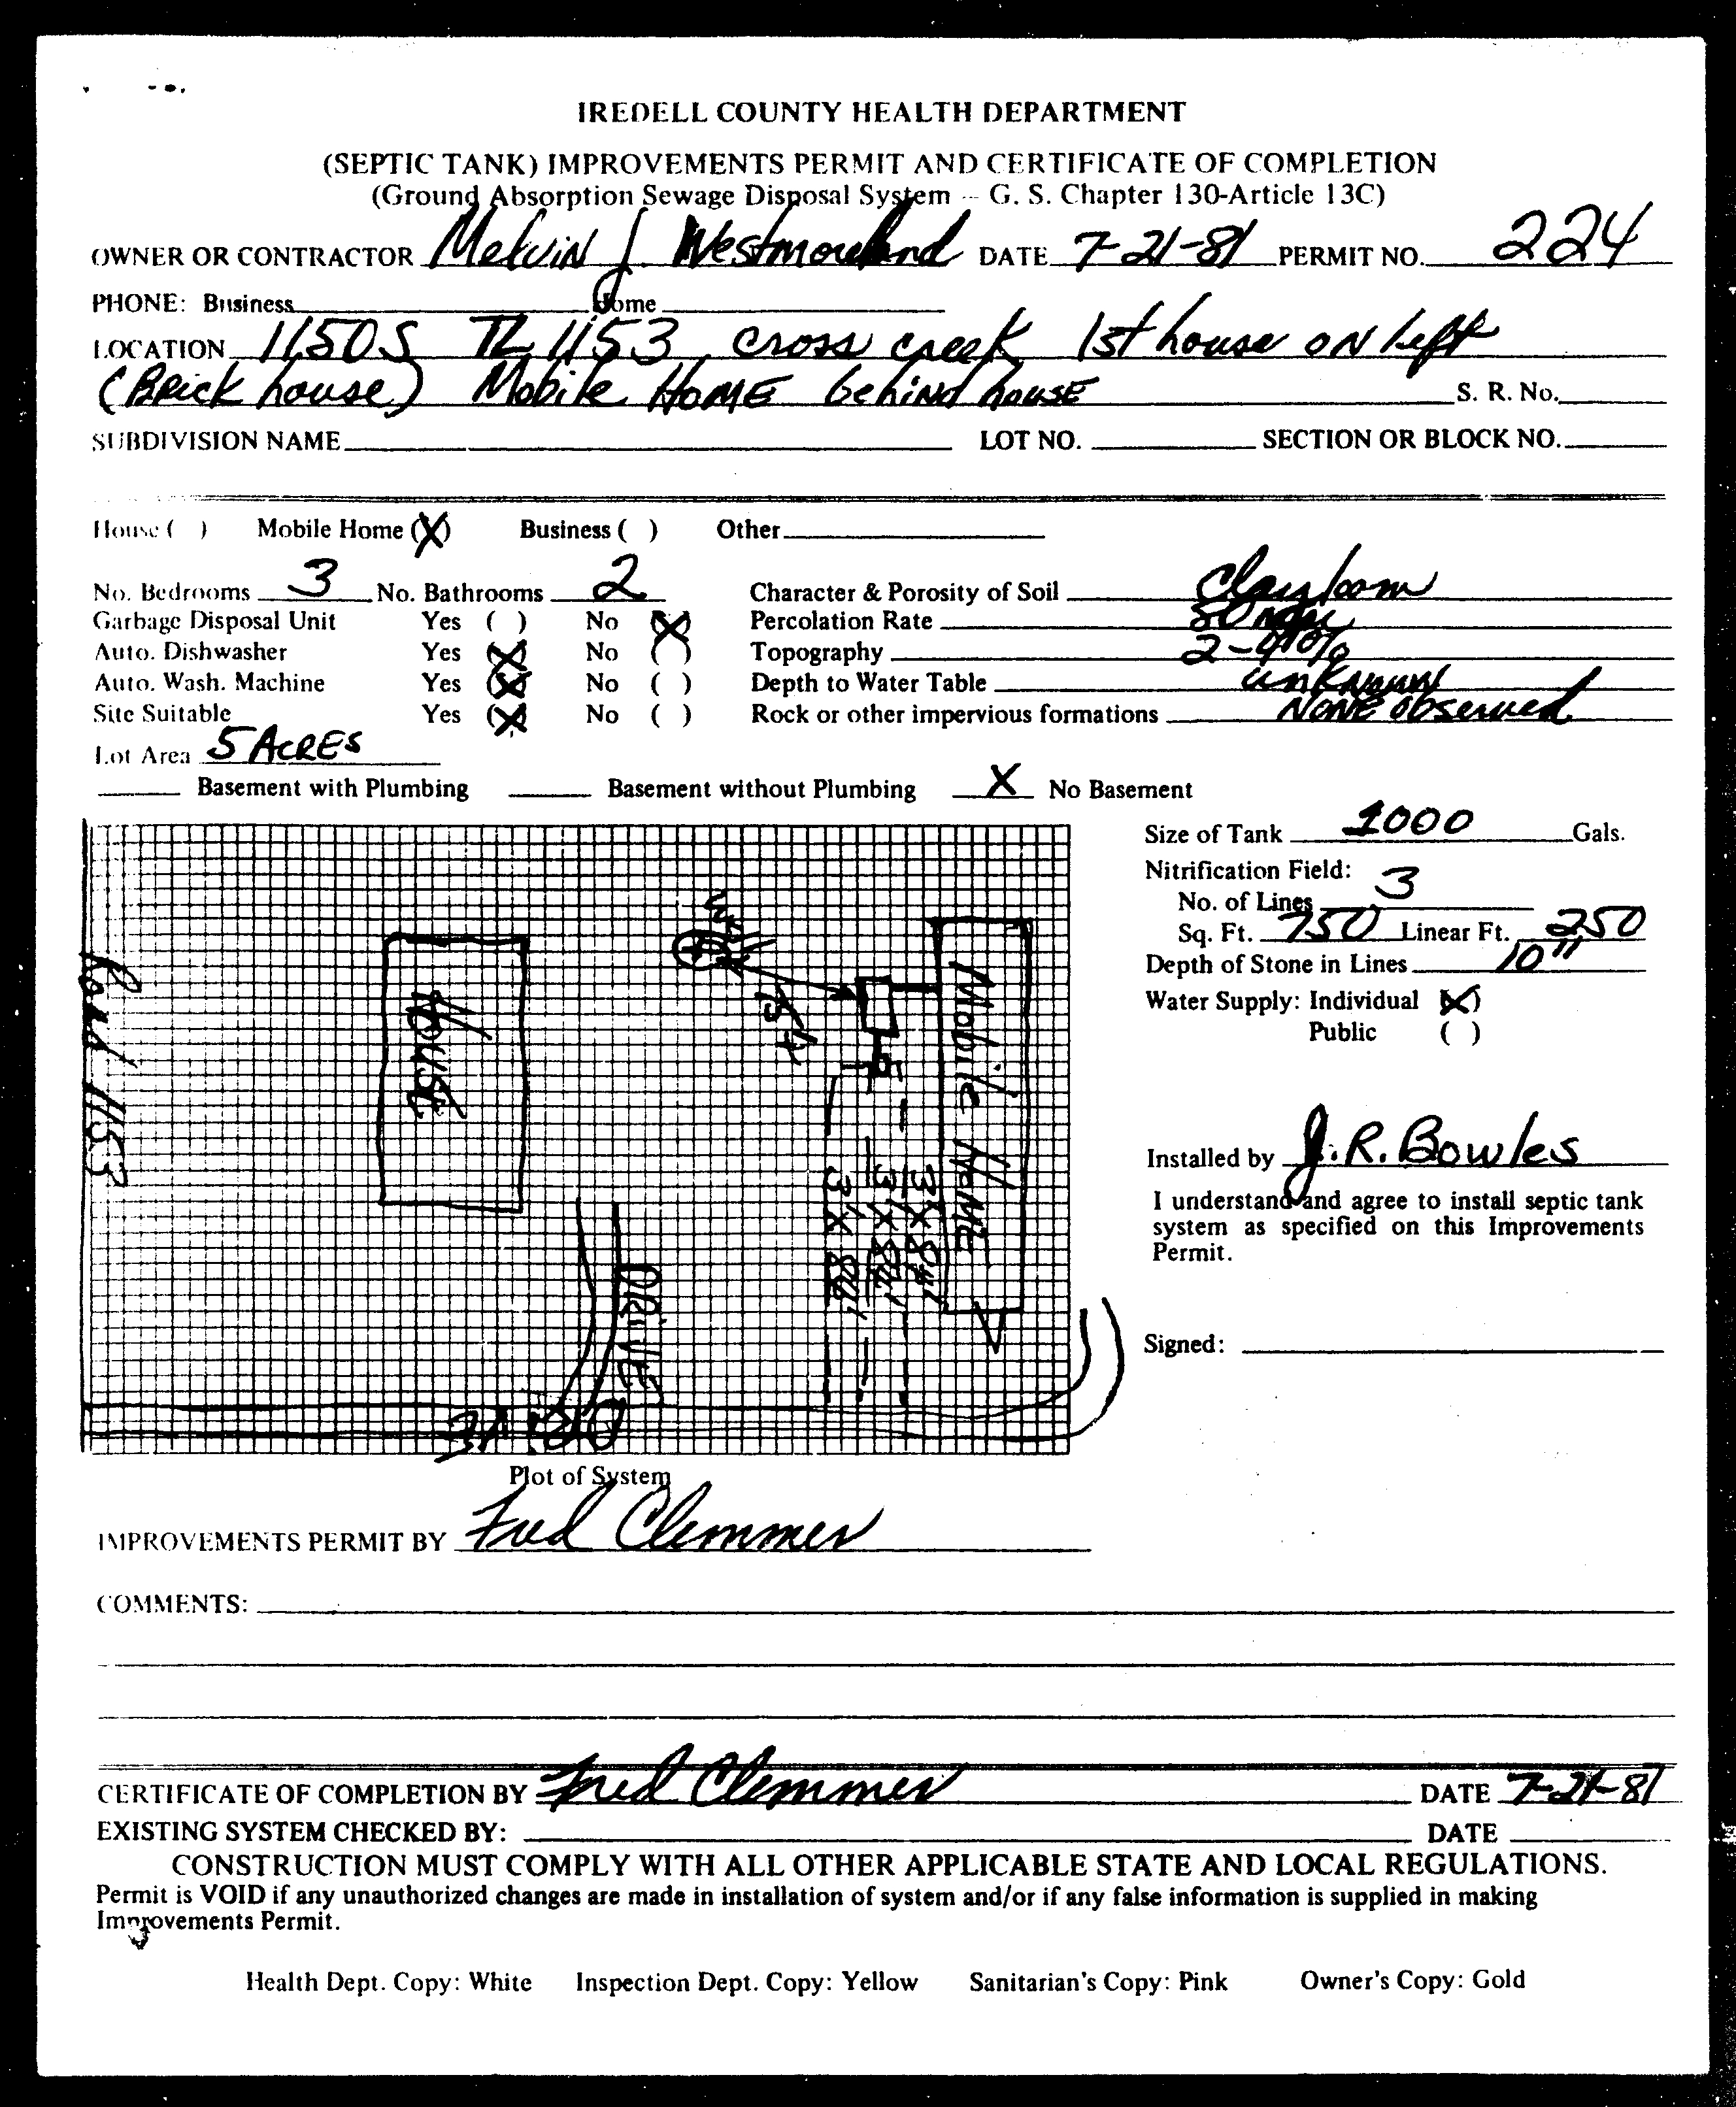 IREDELL COUNTY HEALTH DEPARTMENT
(SEPTIC TANK) IMPROVEMENTS PERMIT AND CERTIFICATE OF COMPLETION
(Ground Absorption Sewage Disposal System -- G. S. Chapter 130-Article 13C)
OWNER OR CONTRACTOR Melvin J. Westmoreland DATE 7-21-81 PERMIT NO. 224
PHONE: Business Home
LOCATION 1150 S TL 1153 cross creek 1st house on left
(Brick house) Mobile HOME behind house S. R. No.
SUBDIVISION NAME LOT NO. SECTION OR BLOCK NO.
House ( ) Mobile Home (X) Business ( ) Other
No. Bedrooms 3 No. Bathrooms 2 Character & Porosity of Soil Clay loam
Garbage Disposal Unit Yes ( ) No (X) Percolation Rate
Auto. Dishwasher Yes (X) No ( ) Topography 2-
Auto. Wash. Machine Yes (X) No ( ) Depth to Water Table unknown
Site Suitable Yes (X) No ( ) Rock or other impervious formations NONE observed
Lot Area 5 ACRES
Basement with Plumbing Basement without Plumbing X No Basement
Size of Tank 1000 Gals.
Nitrification Field:
No. of Lines 3
Sq. Ft. 750 Linear Ft. 250
Depth of Stone in Lines 10"
Water Supply: Individual (X)
Public ( )
Installed by J.R. Bowles
I understand and agree to install septic tank
system as specified on this Improvements
Permit.
Signed:
Road 1153
House
Mobile HOME
3'X84'
3'X84'
3'X84'
DRIVE
DRIVE
Plot of System
IMPROVEMENTS PERMIT BY Fred Clemmer
COMMENTS:
CERTIFICATE OF COMPLETION BY Fred Clemmer DATE 7-21-81
EXISTING SYSTEM CHECKED BY: DATE
CONSTRUCTION MUST COMPLY WITH ALL OTHER APPLICABLE STATE AND LOCAL REGULATIONS.
Permit is VOID if any unauthorized changes are made in installation of system and/or if any false information is supplied in making
Improvements Permit.
Health Dept. Copy: White Inspection Dept. Copy: Yellow Sanitarian's Copy: Pink Owner's Copy: Gold